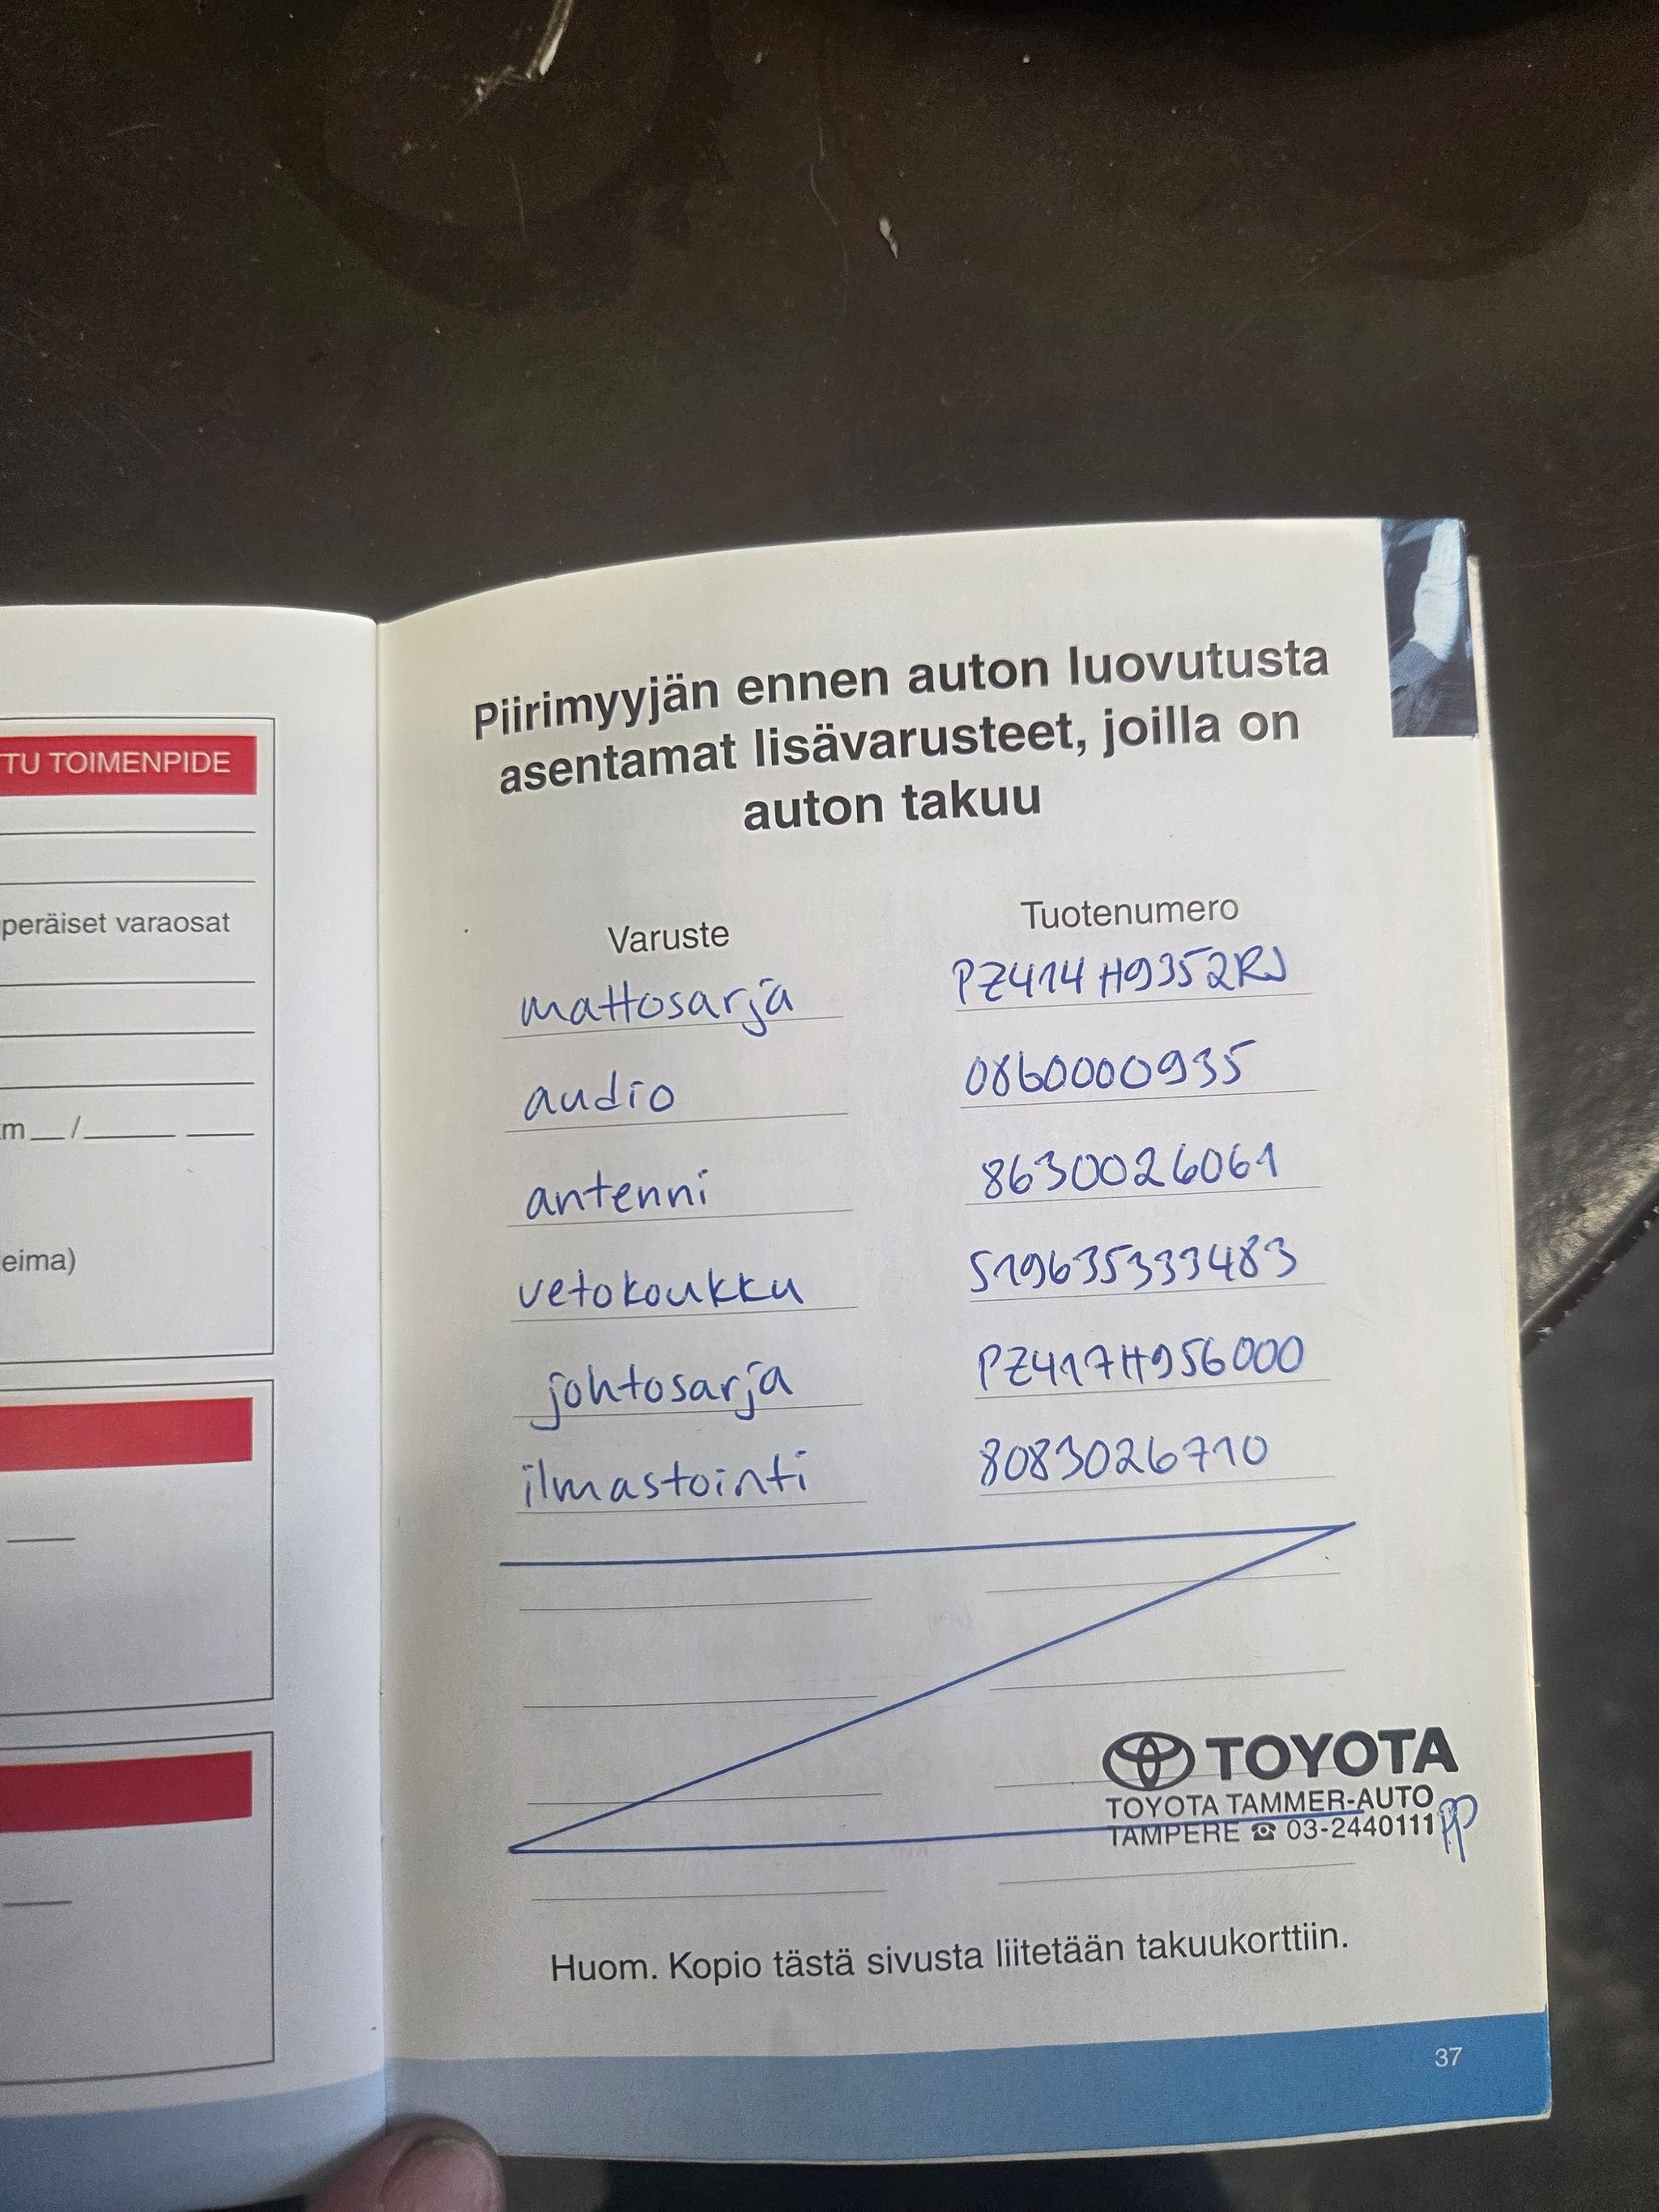 TU TOIMENPIDE
peräiset varaosat
m __ / ______ ____
eima)
Piirimyyjän ennen auton luovutusta
asentamat lisävarusteet, joilla on
auton takuu
Varuste Tuotenumero
mattosarja PZ414H9352RJ
audio 0860000935
antenni 8630026061
vetokoukku 519635333483
johtosarja PZ417H956000
ilmastointi 8083026710
TOYOTA
TOYOTA TAMMER-AUTO
TAMPERE ☎ 03-2440111
PP
Huom. Kopio tästä sivusta liitetään takuukorttiin.
37